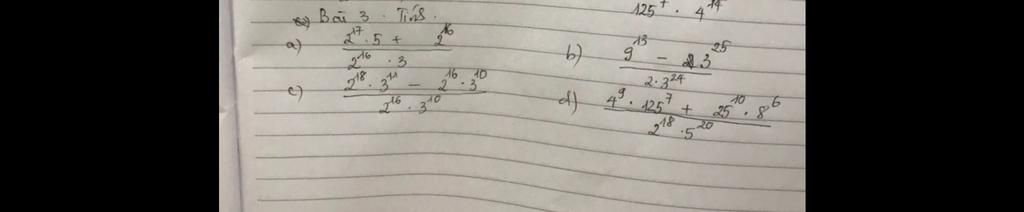 125⁷ · 4¹⁴
Bài 3. Tính.
a) (2¹⁷ · 5 + 2¹⁶) / (2¹⁶ · 3)
b) (9¹³ − 3²⁵) / (2 · 3²⁴)
c) (2¹⁸ · 3¹¹ − 2¹⁶ · 3¹⁰) / (2¹⁶ · 3¹⁰)
d) (4⁹ · 125⁷ + 25¹⁰ · 8⁶) / (2¹⁸ · 5²⁰)